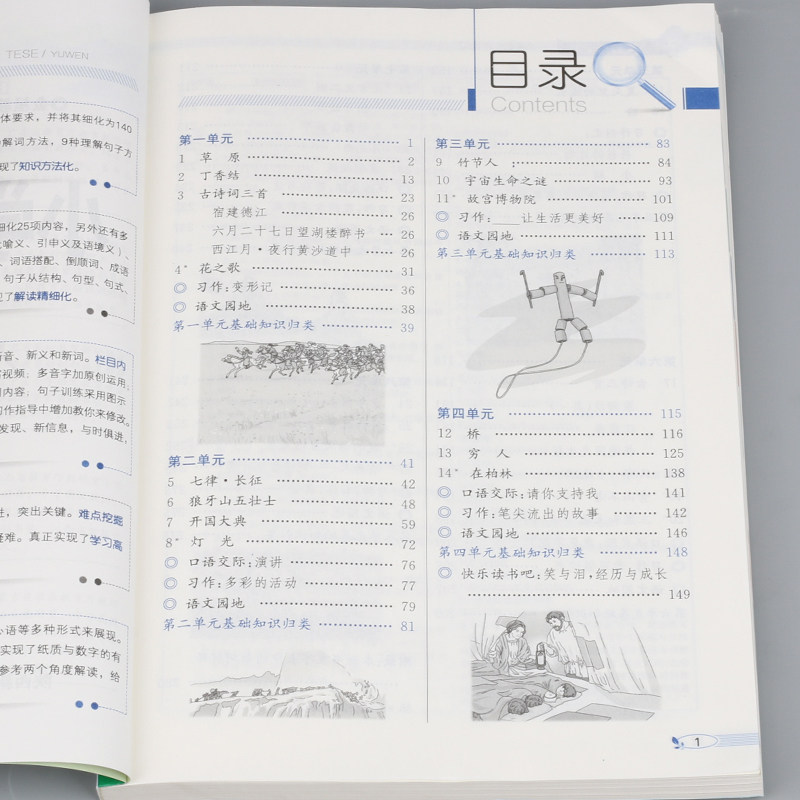 TESE / YUWEN
体要求，并将其细化为140
解词方法，9种理解句子方
现了知识方法化。
细化25项内容，另外还有多
喻义、引申义及语境义）、
、词语搭配、倒顺词、成语
句子从结构、句型、句式、
现了解读精细化。
新音、新义和新词。栏目内
视频；多音字加原创运用；
内容；句子训练采用图示
作指导中增加教你来修改。
发现、新信息，与时俱进，
进，突出关键。难点挖掘
疑难。真正实现了学习高
心语等多种形式来展现。
实现了纸质与数字的有
参考两个角度解读，给
目录
Contents
第一单元 1
1 草 原 2
2 丁香结 13
3 古诗词三首 23
宿建德江 26
六月二十七日望湖楼醉书 26
西江月·夜行黄沙道中 26
4* 花之歌 31
◎ 习作：变形记 36
◎ 语文园地 38
第一单元基础知识归类 39
第二单元 41
5 七律·长征 42
6 狼牙山五壮士 48
7 开国大典 59
8* 灯 光 72
◎ 口语交际：演讲 76
◎ 习作：多彩的活动 77
◎ 语文园地 79
第二单元基础知识归类 81
第三单元 83
9 竹节人 84
10 宇宙生命之谜 93
11* 故宫博物院 101
◎ 习作：____让生活更美好 109
◎ 语文园地 111
第三单元基础知识归类 113
第四单元 115
12 桥 116
13 穷 人 125
14* 在柏林 138
◎ 口语交际：请你支持我 141
◎ 习作：笔尖流出的故事 142
◎ 语文园地 146
第四单元基础知识归类 148
◎ 快乐读书吧：笑与泪，经历与成长
149
1